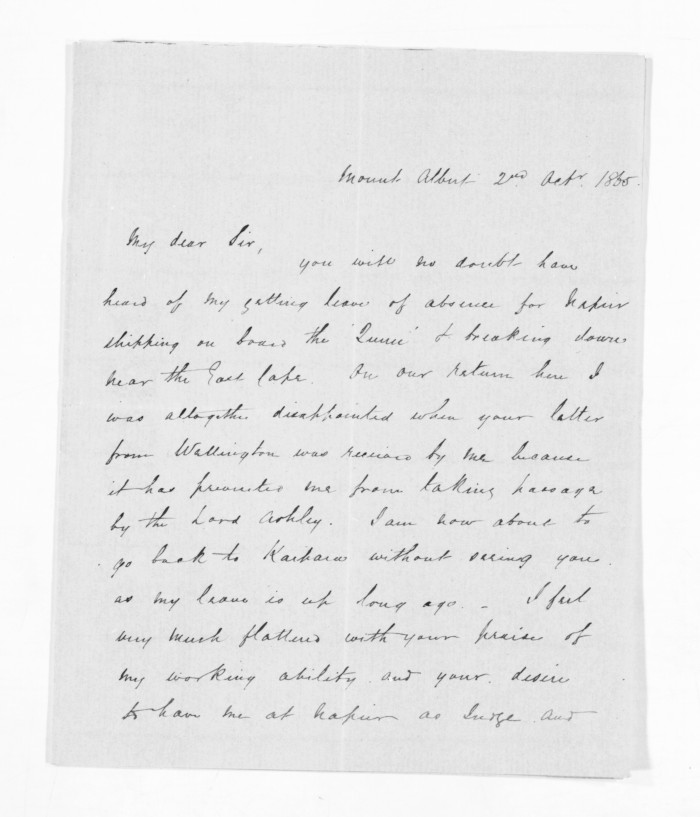 Mount Albert 2nd Octr. 1865.
My dear Sir,
you will no doubt have
heard of my getting leave of absence for Napier
shipping on board the 'Queen' & breaking down
near the East Cape. On our return here I
was altogether disappointed when your letter
from Wellington was received by me because
it has prevented me from taking passage
by the Lord Ashley. I am now about to
go back to Kaipara without seeing you.
as my leave is up long ago. _ I feel
very much flattered with your praise of
my working ability and your desire
to have me at Napier as Judge and